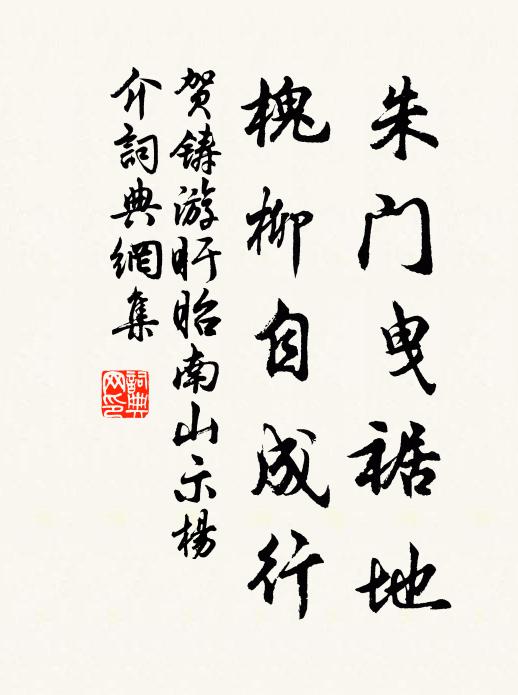 朱门曳裾地
槐柳自成行
贺鑄游盱眙南山示楊
介詞典網集
詞典
网印